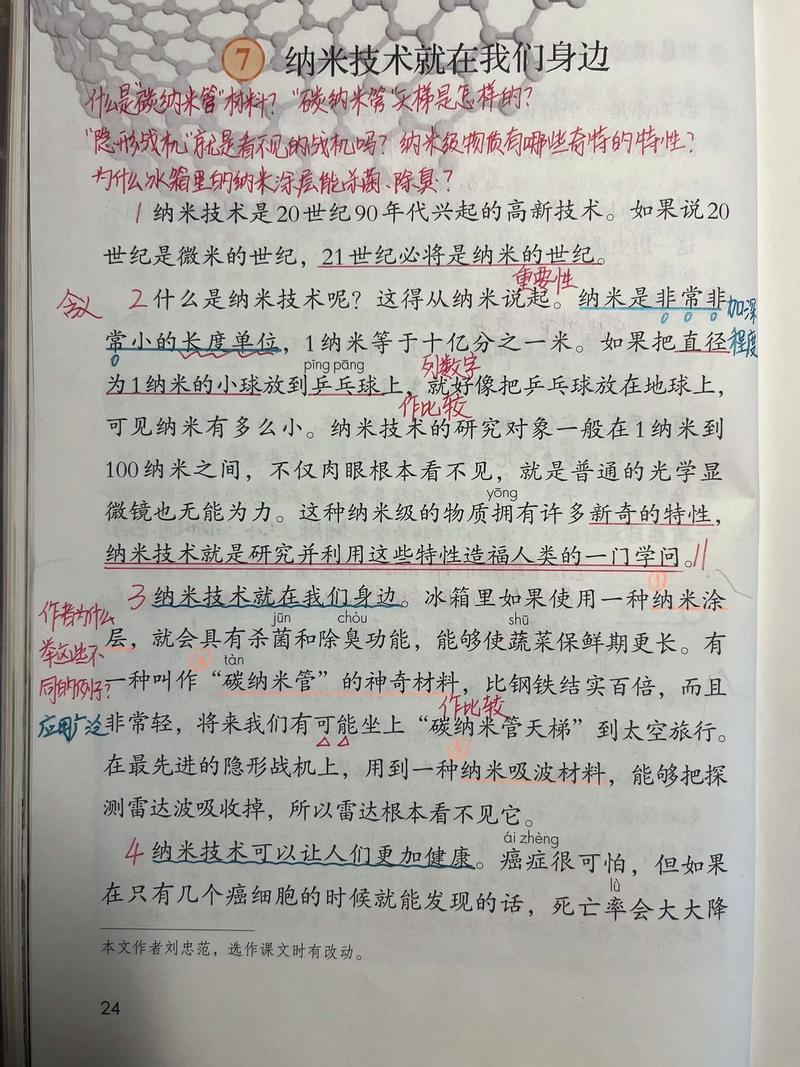 7 纳米技术就在我们身边
什么是"碳纳米管"材料？"碳纳米管"天梯是怎样的？
"隐形战机"就是看不见的战机吗？纳米级物质有哪些奇特的特性？
为什么冰箱里的纳米涂层能杀菌、除臭？
1 纳米技术是20世纪90年代兴起的高新技术。如果说20
世纪是微米的世纪，21世纪必将是纳米的世纪。
重要性
含义 2 什么是纳米技术呢？这得从纳米说起。纳米是非常非 加深
常小的长度单位，1纳米等于十亿分之一米。如果把直径 程度
pīng pāng 列数字
为1纳米的小球放到乒乓球上，就好像把乒乓球放在地球上，
作比较
可见纳米有多么小。纳米技术的研究对象一般在1纳米到
100纳米之间，不仅肉眼根本看不见，就是普通的光学显
yōng
微镜也无能为力。这种纳米级的物质拥有许多新奇的特性，
纳米技术就是研究并利用这些特性造福人类的一门学问。
①
3 纳米技术就在我们身边。冰箱里如果使用一种纳米涂
作者为什么
jūn chòu shū
层，就会具有杀菌和除臭功能，能够使蔬菜保鲜期更长。有
举这些不
tàn
同的例子？
一种叫作"碳纳米管"的神奇材料，比钢铁结实百倍，而且
作比较
应用广泛
非常轻，将来我们有可能坐上"碳纳米管天梯"到太空旅行。
在最先进的隐形战机上，用到一种纳米吸波材料，能够把探
测雷达波吸收掉，所以雷达根本看不见它。
ái zhèng
4 纳米技术可以让人们更加健康。癌症很可怕，但如果
lǜ
在只有几个癌细胞的时候就能发现的话，死亡率会大大降
本文作者刘忠范，选作课文时有改动。
24